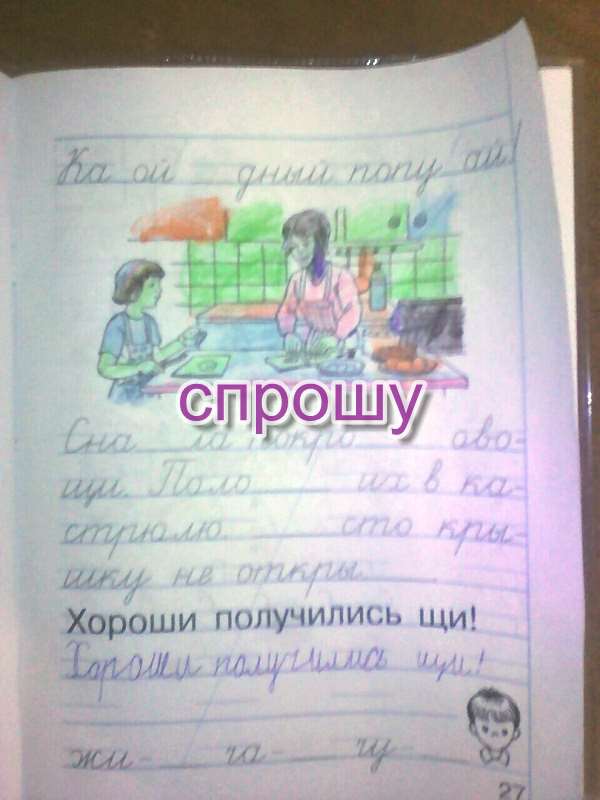 Ка ой дный попу ай!
спрошу
Сна ла покро ово-
щи. Поло их в ка-
стрюлю. сто кры-
шку не откры
Хороши получились щи!
Хороши получились щи!
жи- ча- чу-
27